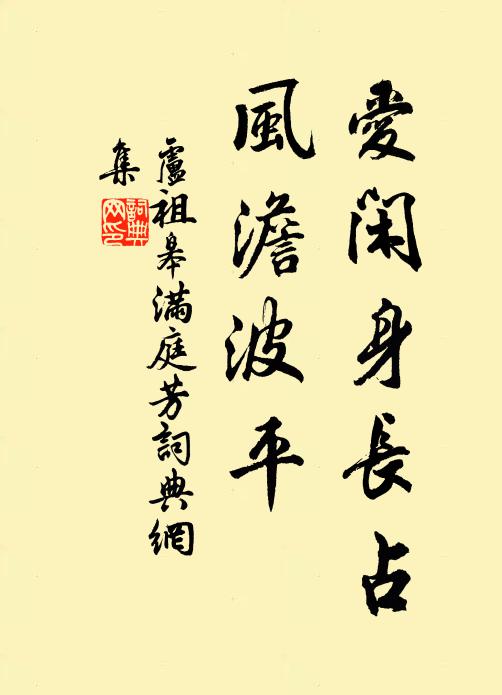 愛閑身長占
風澹波平
盧祖皋滿庭芳詞典網
集
詞典
网印